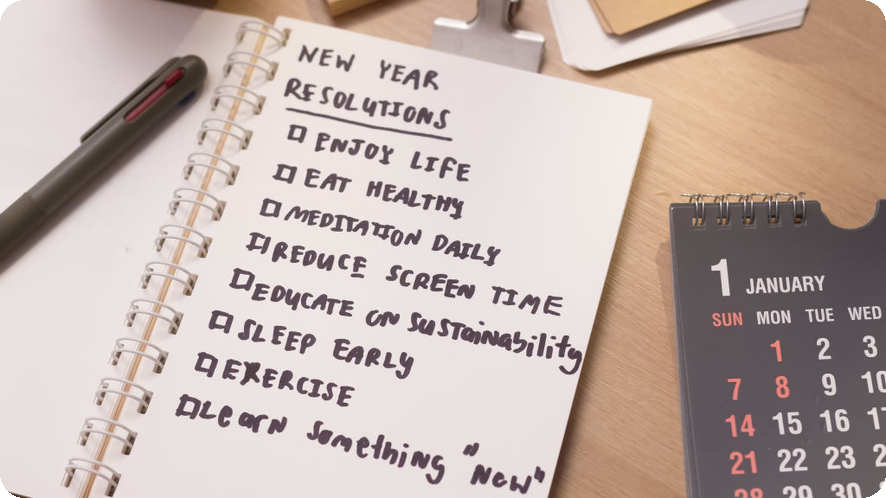 NEW YEAR
RESOLUTIONS
ENJOY LIFE
EAT HEALTHY
MEDITATION DAILY
REDUCE SCREEN TIME
EDUCATE ON SUSTainability
SLEEP EARLY
EXERCISE
Learn Something "New"
1 JANUARY
SUN MON TUE WED
1 2 3
7 8 9 10
14 15 16 17
21 22 23
28 29 30